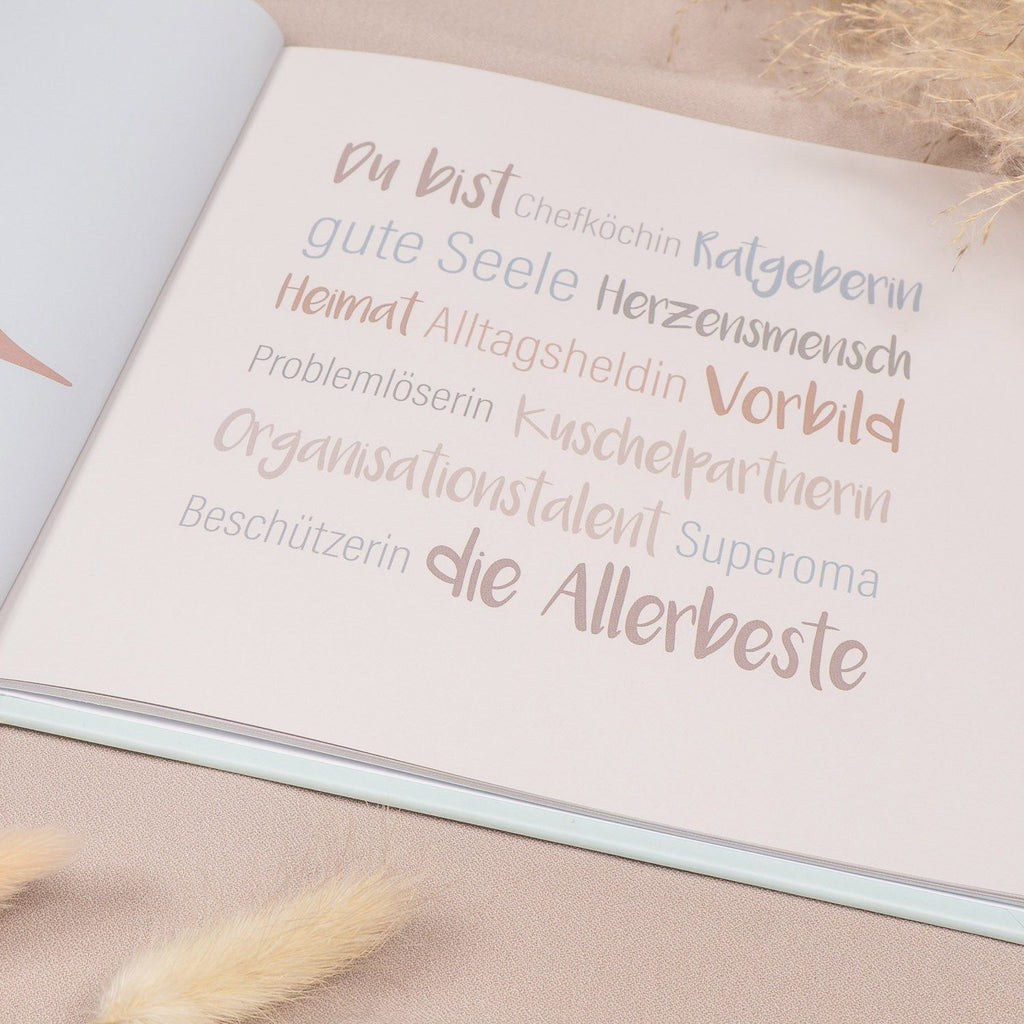 Du bist Chefköchin Ratgeberin
gute Seele Herzensmensch
Heimat Alltagsheldin Vorbild
Problemlöserin Kuschelpartnerin
Organisationstalent Superoma
Beschützerin die Allerbeste